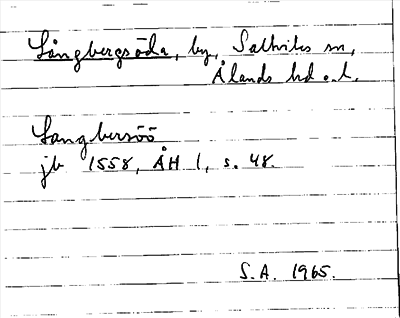 Långbergsöda, by, Saltviks sn,
Ålands hd o. l.
Langbersöö
jb 1558, ÅH 1, s. 48.
S.A. 1965.